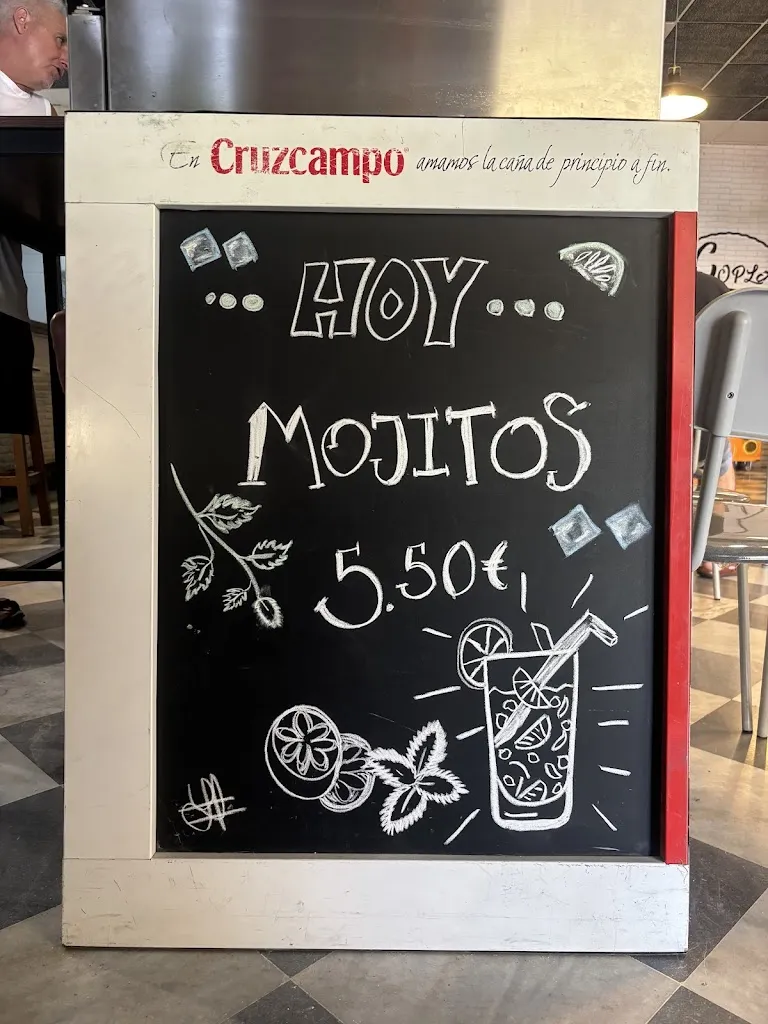 En Cruzcampo amamos la caña de principio a fin.
...HOY...
MOJITOS
5.50€